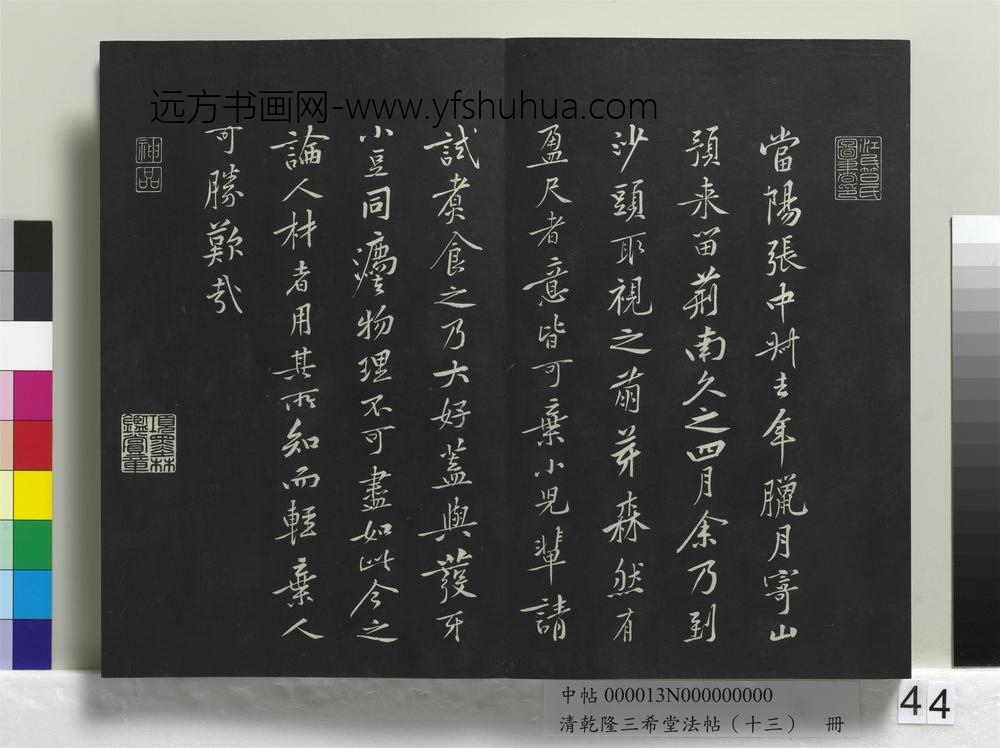 當陽張中叔去年臘月寄山
預来留荊南久之四月余乃到
沙頭取視之萠芽森然有
盈尺者意皆可棄小児輩請
試煮食之乃大好蓋與發牙
小豆同𤼵物理不可盡如此今之
論人材者用其所知而輕棄人
可勝歎哉
神品
远方书画网-www.yfshuhua.com
中帖 000013N000000000
清乾隆三希堂法帖（十三） 冊
44